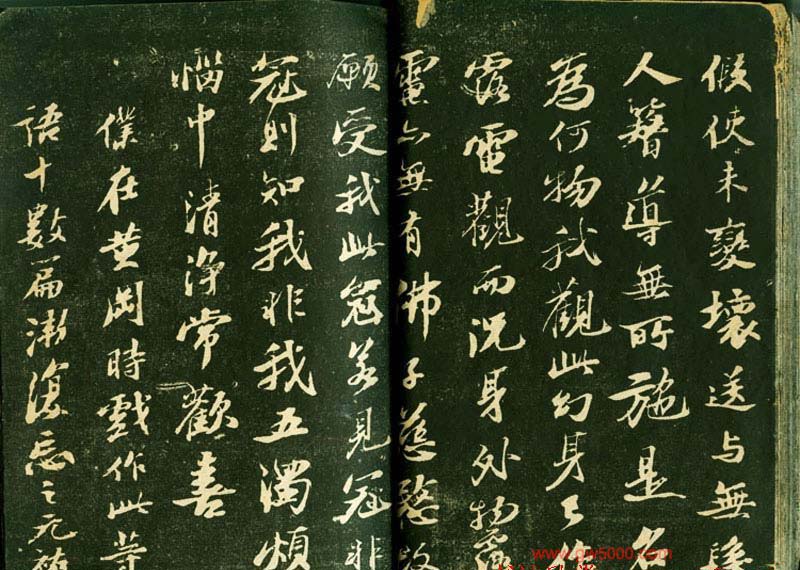 假使未變壞送与無
人簪導無所施是名
為何物我觀此幻身已
露電觀而況身外物露
電亦無有佛子慈愍故
願受我此冠若見冠非
冠則知我非我五濁煩
惱中清淨常歡喜
僕在黄岡時戲作此等
語十數篇漸復忘之元祐
www.qw5000.com